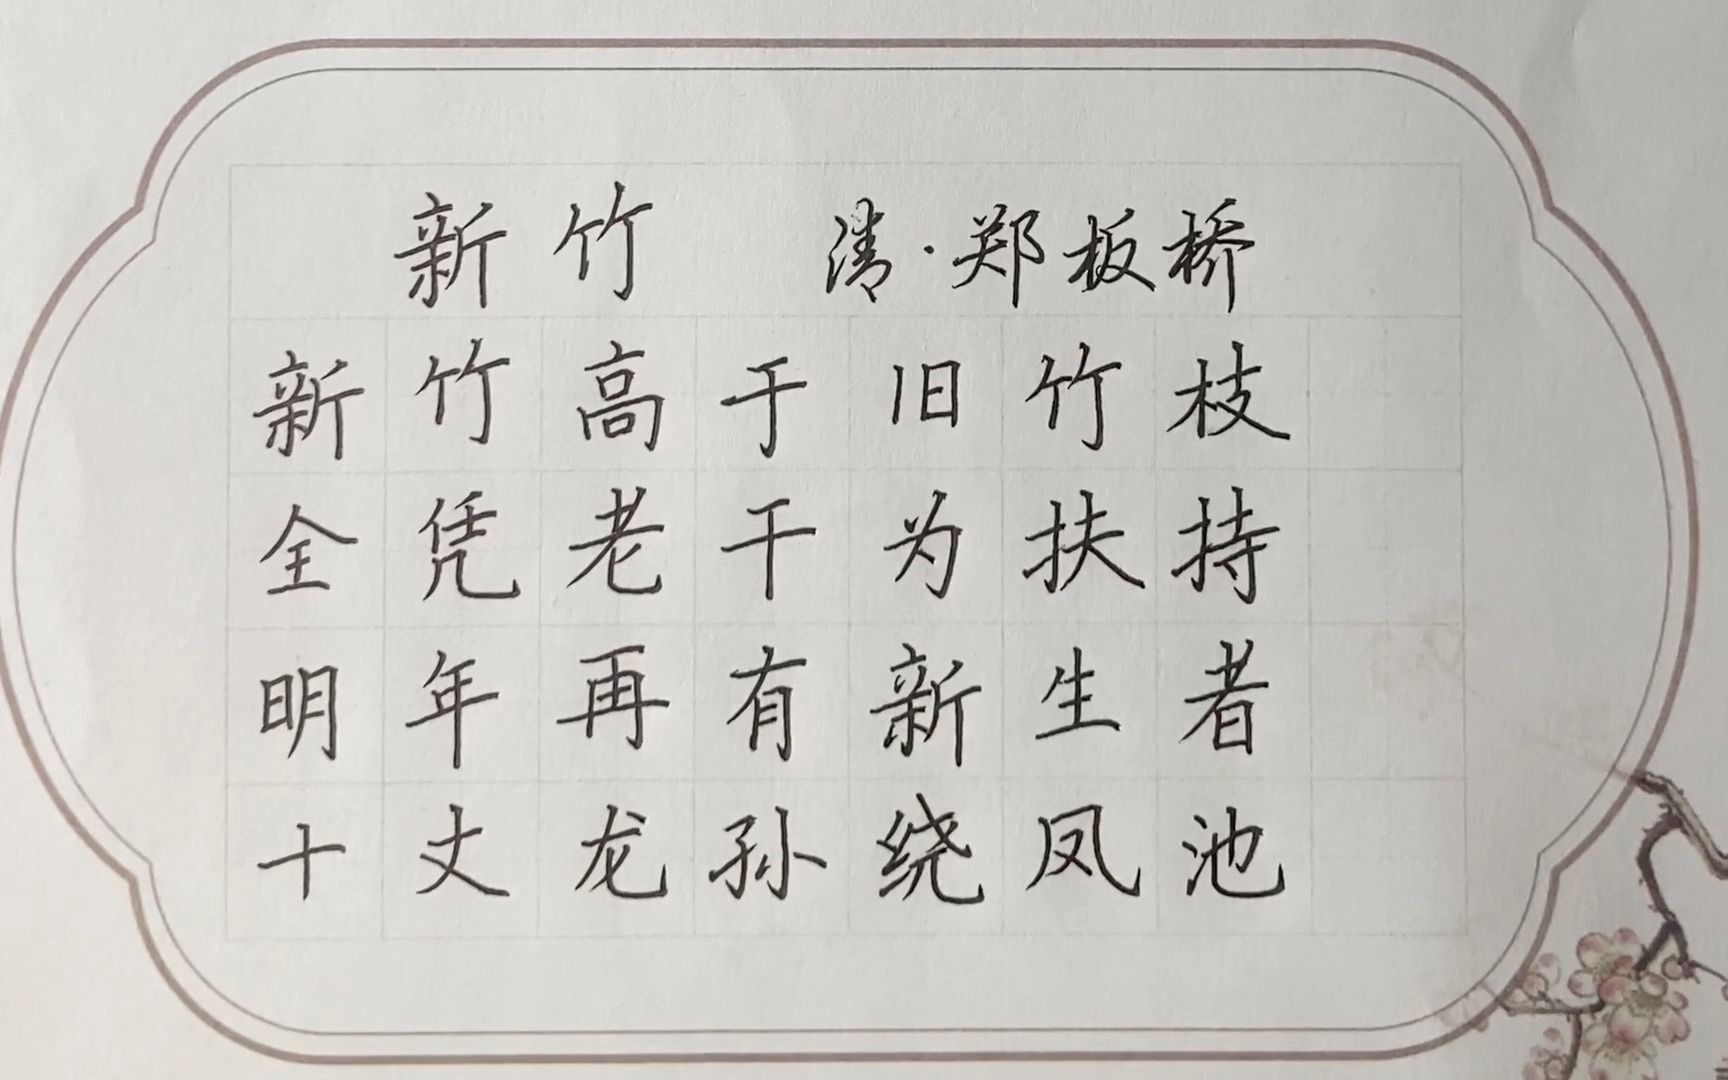 新竹 清·郑板桥
新竹高于旧竹枝
全凭老干为扶持
明年再有新生者
十丈龙孙绕凤池